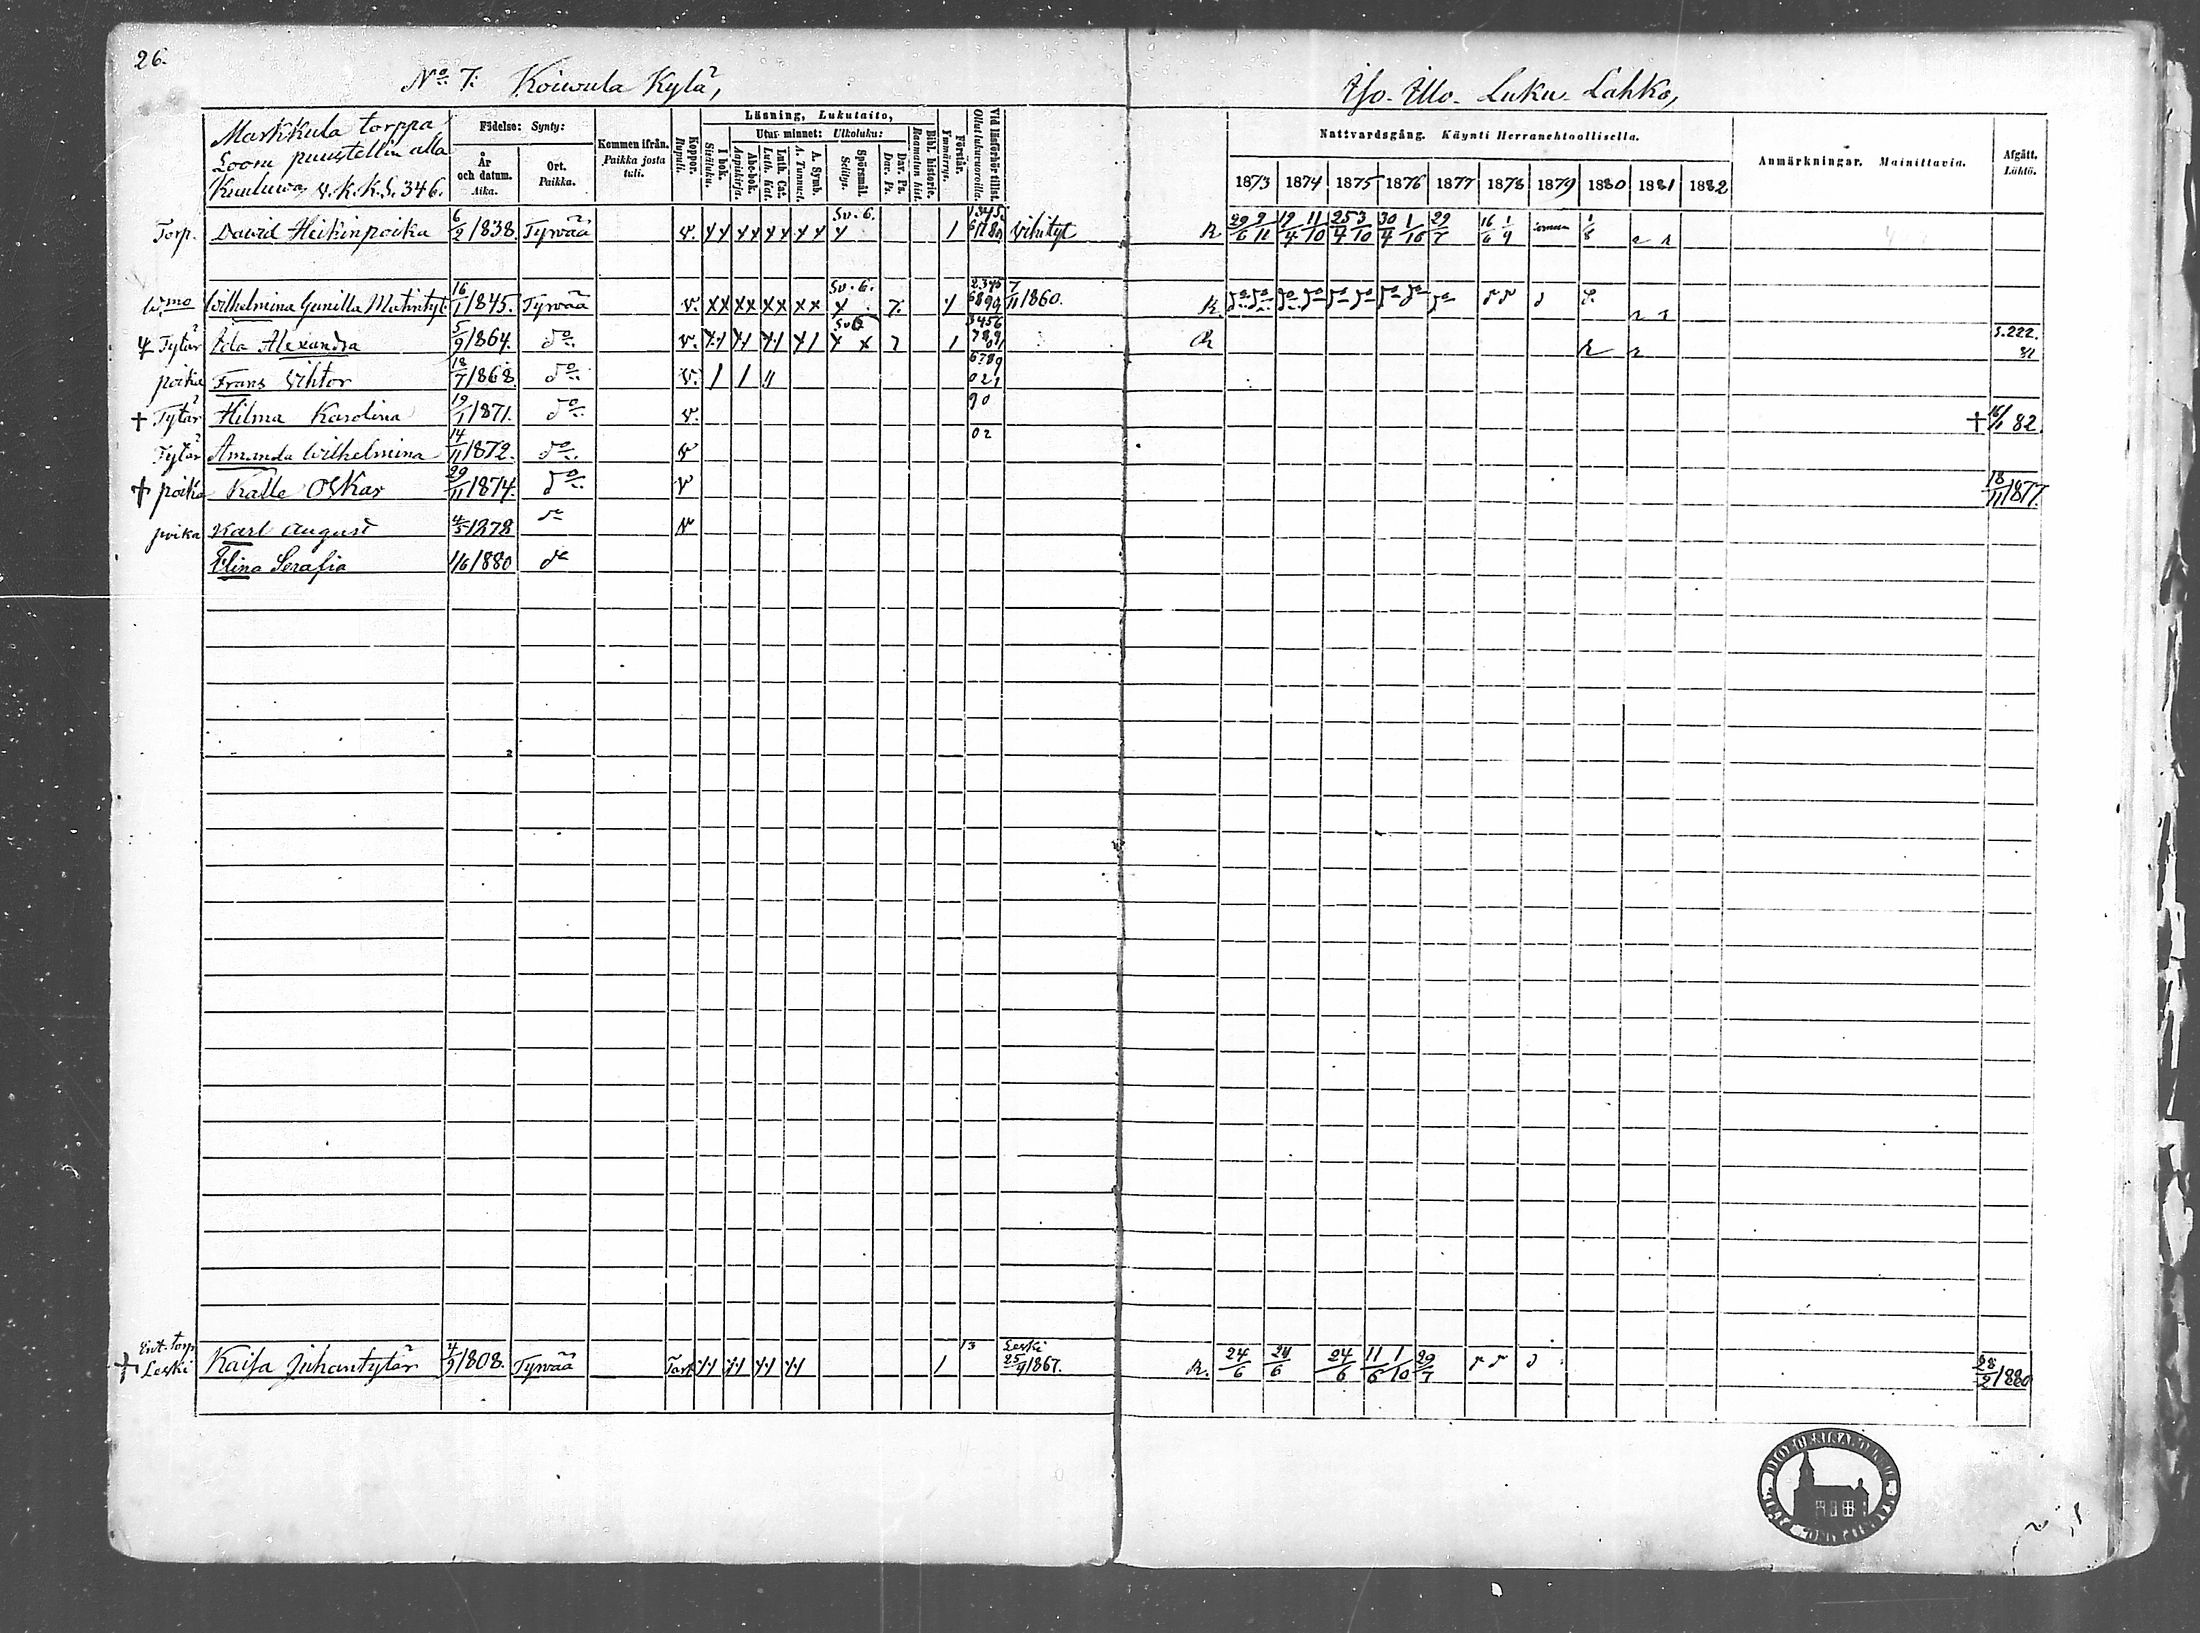 26.
No 7. Koiwula Kylä,
Iso-Illo-Luku-Lahko,
Markkula torppa
Loom puustellin alla
Kuuluwa, v.k.k.S. 346.
Födelse: Synty:
År och datum. Aika.
Ort. Paikka.
Kommen ifrån. Paikka josta tuli.
Koppor. Rupuli.
Läsning, Lukutaito,
I bok. Sisäluku.
Utur minnet: Ulkoluku:
Abc-bok. Aapiskirja.
Luth. Cat. Luth. Kat.
A. Symb. A. Tunnust.
Spörsmål. Selitys.
Dav. Ps. Dav. Ps.
Bibl. historie. Raamatun hist.
Förstår. Ymmärrys.
Vid läsförhör tillst. Ollut lukuvuoroilla.
Nattvardsgång. Käynti Herranehtoollisella.
1873 1874 1875 1876 1877 1878 1879 1880 1881 1882
Anmärkningar. Mainittavia.
Afgått. Lähtö.
Torp. Dawid Heikinpoika 6/2 1838. Tyrwää v. Sv. 6. Vihityt R 29/6 9/11 19/4 11/10 25/4 3/10 30/4 1/10 29/7 16/6 1/9 1/8
W:mo Wilhelmina Gunilla Matintyt. 16/1 1845. Tyrwää v. Sv. 6. 7. 7/11 1860. R.
Tytär Ida Alexandra 5/9 1864. do v. Sv 6 R S. 222. 81
poika Frans Vihtor 18/7 1868 do v.
† Tytär Hilma Karolina 19/1 1871. do v. 90 † 16/11 82.
Tytär Amanda Wilhelmina 14/11 1872. do v 02
† poika Kalle Oskar 29/11 1874. do v 18/11 1877.
poika Karl August 4/5 1878 do v
Elina Serafia 1/6 1880 do
Ent. torp
† Leski Kaisa Juhantytär 4/9 1808. Tyrwää 13 Leski 25/9 1867. R. 24/6 24/6 24/6 11/6 1/10 29/7 28/2 1880